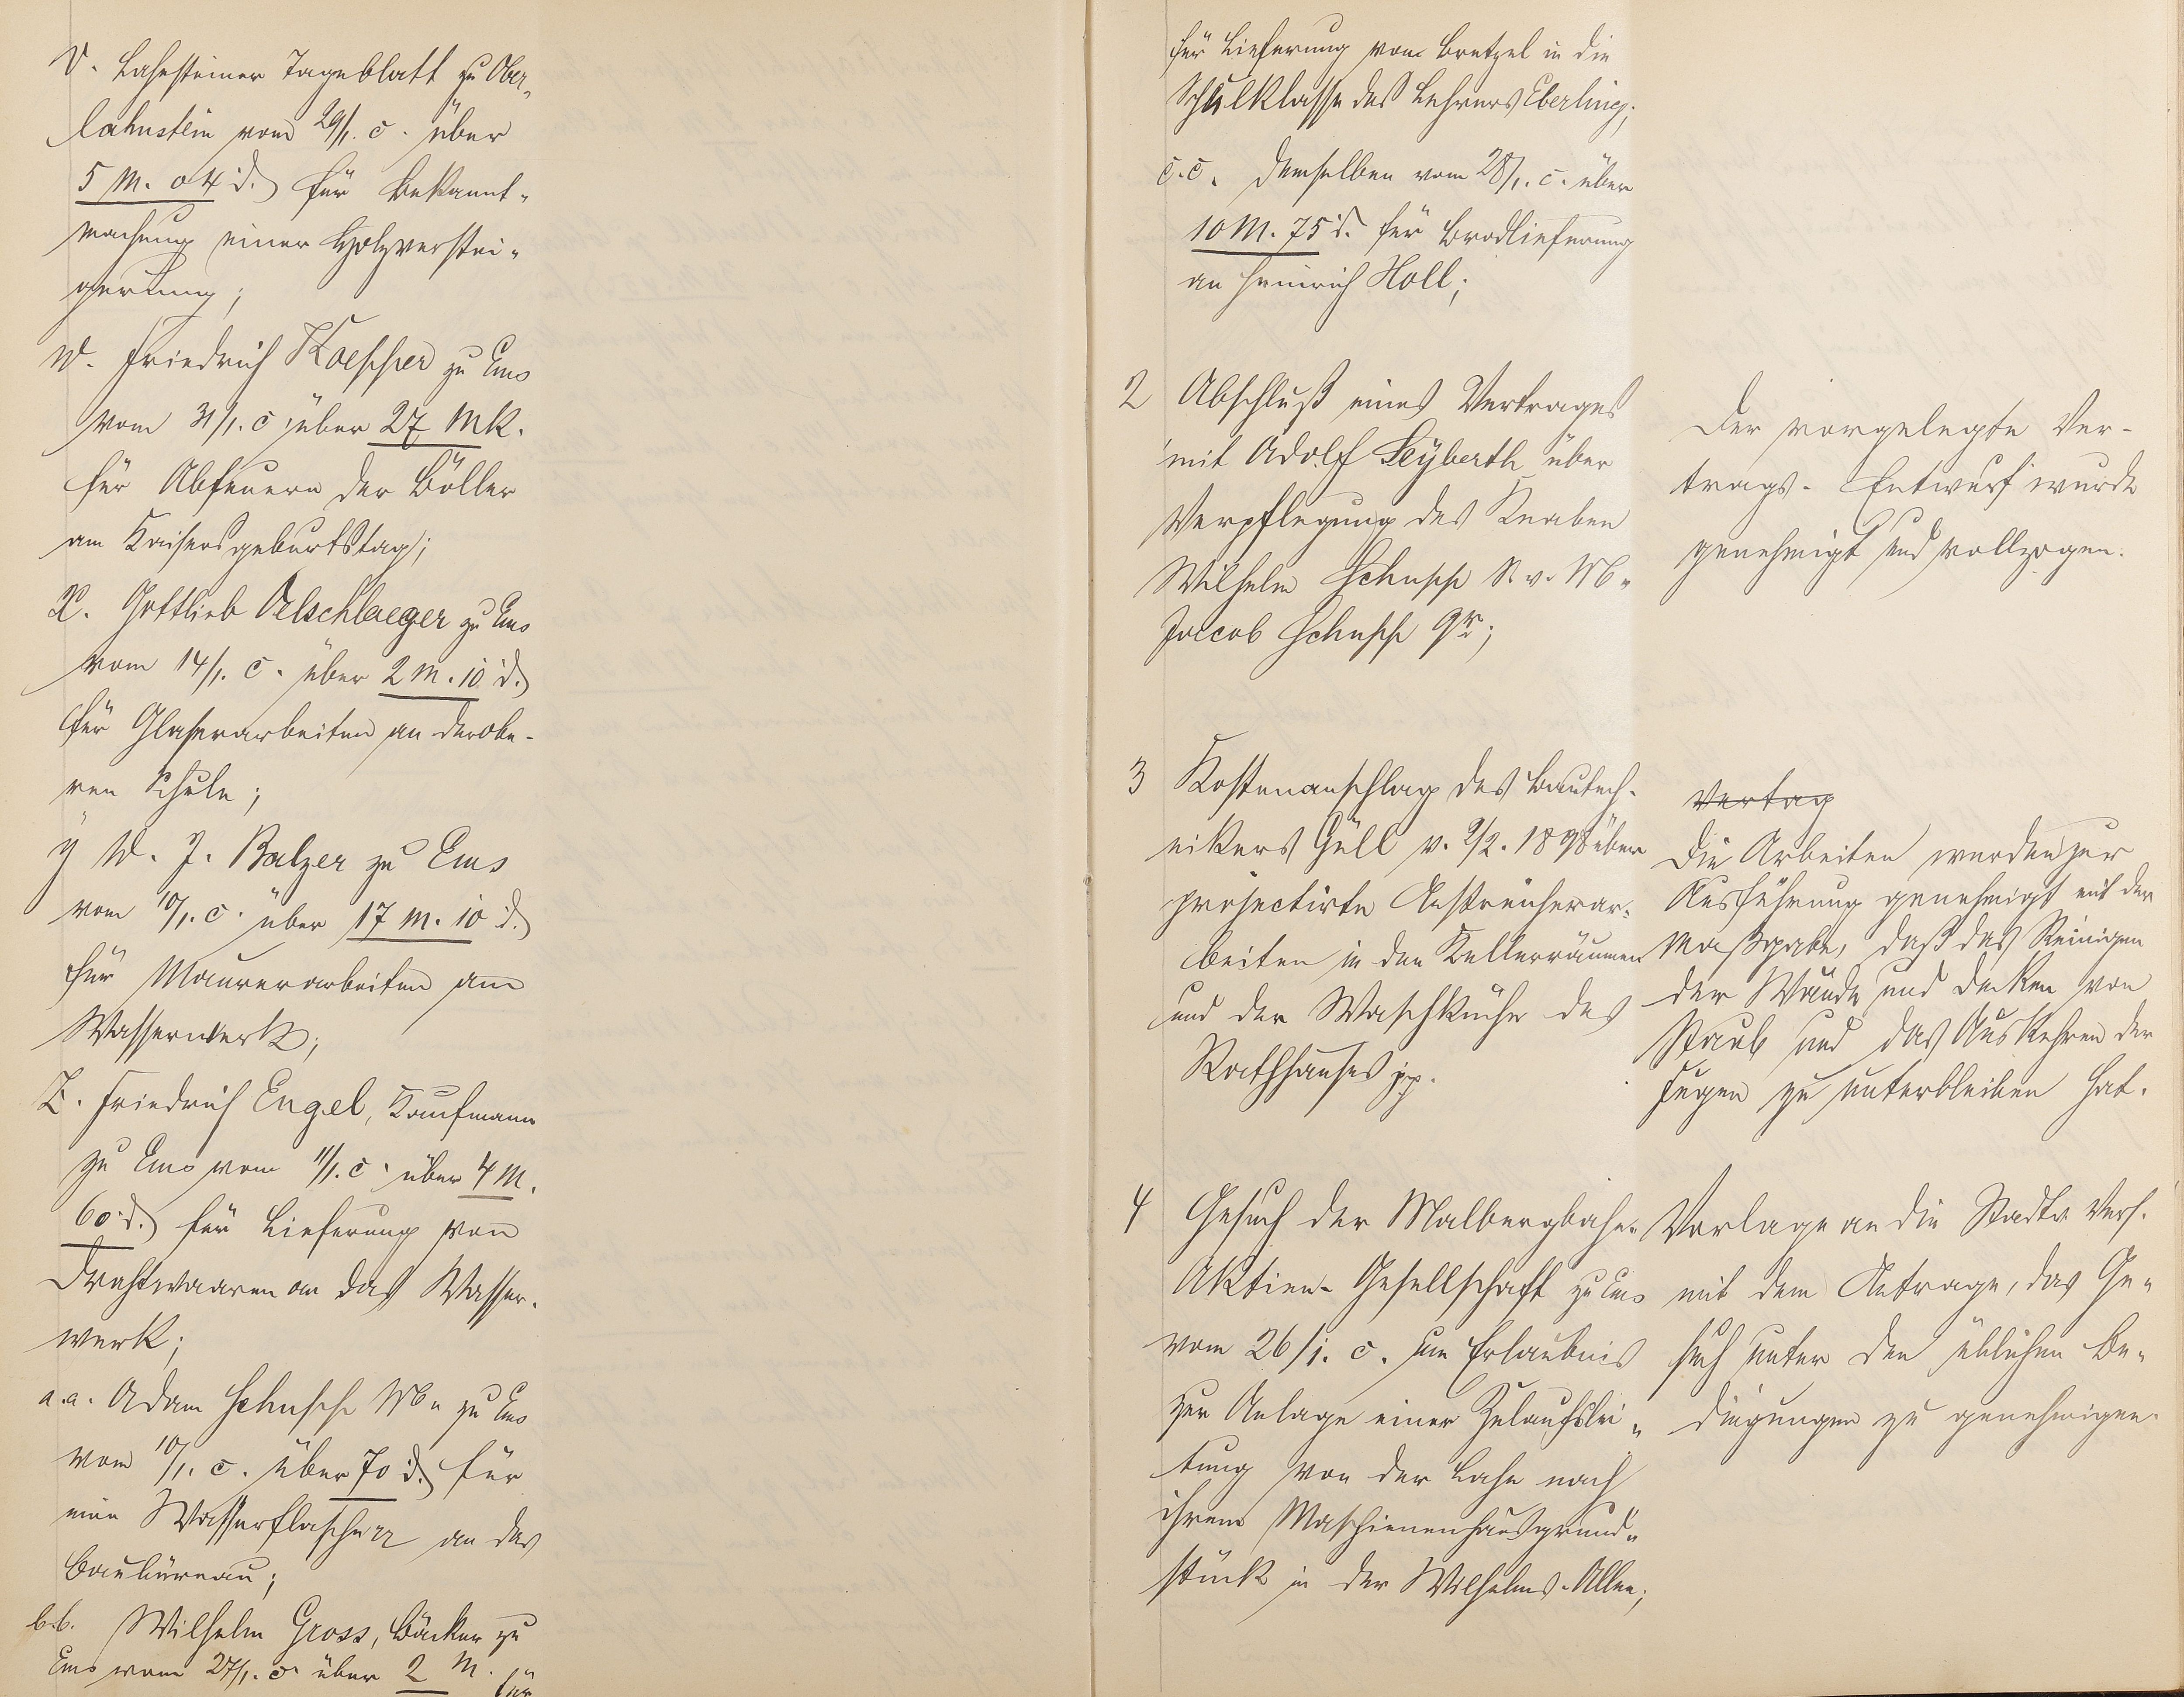 v. Lahnsteiner Tageblatt zu Ober„
lahnstein vom 29/1. c. über
5 M. 04 d. für Bekannt„
machung einer Holzverstei„
gerung;
w. Friedrich Kaeppher zu Ems
vom 31/1. c über 27 Mk.
für Abfeuern der Böller
am Kaisersgeburtstag;
x. Gottlieb Oelschlaeger zu Ems
vom 14/1. c. über 2 M. 10 d.
für Glaserarbeiten an der obe-
ren Schule;
ÿ W. J. Balzer zu Ems
vom 10/1. c. über 17 M. 10 d.
für Maurerarbeiten am
Wasserwerk;
Z. Friedrich Engel, Kaufmann
zu Ems vom 11/1. c. über 4 M.
60 d. für Lieferung von
Drahtwaaren an das Wasser-
werk;
a.a. Adam Schupp zu Ems
vom 10/1. c. über 70 d. für
eine Wasserflasche an das
Baubüreau;
b.b. Wilhelm Gross, Bäcker zu
Ems vom 27/1. c. über 2 M. für
für Lieferung von Bretzel in die
Schulklasse des Lehrers Eberling;
c.c. Demselben vom 28/1. c. über
10 M. 75 d. für Brodlieferung
an Heinrich Holl;
2 Abschluß eines Vertrages
mit Adolf Seyberth über
Verpflegung des Knaben
Wilhelm Schupp S. v.
Jacob Schupp
Der vorgelegte Ver-
trags-Entwurf wurde
genehmigt und vollzogen.
3 Kostenanschlag des Bautech-
nikers Güll v. 2/2. 1898 über
projectirte Anstreicherar-
beiten in den Kellerräumen
und der Waschküche des
Rathhauses pp.
Vertag
Die Arbeiten werden zur
Ausführung genehmigt mit der
Maßgabe, daß das Reinigen
der Wände und Decken von
Staub und das Auskehren der
Fugen zu unterbleiben hat.
4 Gesuch der Malbergbahn„
Aktien-Gesellschaft zu Ems
vom 26/1. c. um Erlaubnis
zur Anlage einer Zulaufslei„
tung von der Lahn nach
ihrem Maschienenhausgrund„
stück in der Wilhelms-Allee;
Vorlage an die Stadtv. Vers.
mit dem Antrage, das Ge„
such unter den üblichen Be„
dingungen zu genehmigen.